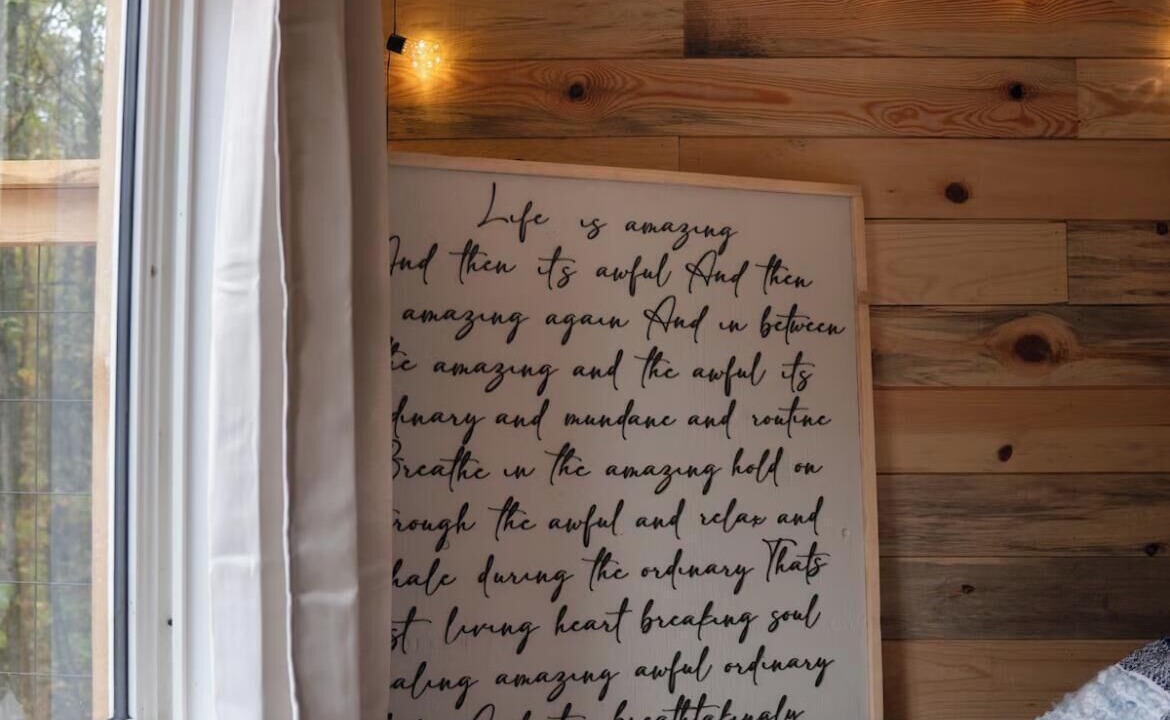 Life is amazing
And then its awful And then
amazing again And in between
the amazing and the awful its
dinary and mundane and routine
Breathe in the amazing hold on
rough the awful and relax and
hale during the ordinary Thats
st living heart breaking soul
aling amazing awful ordinary
breathtakingly